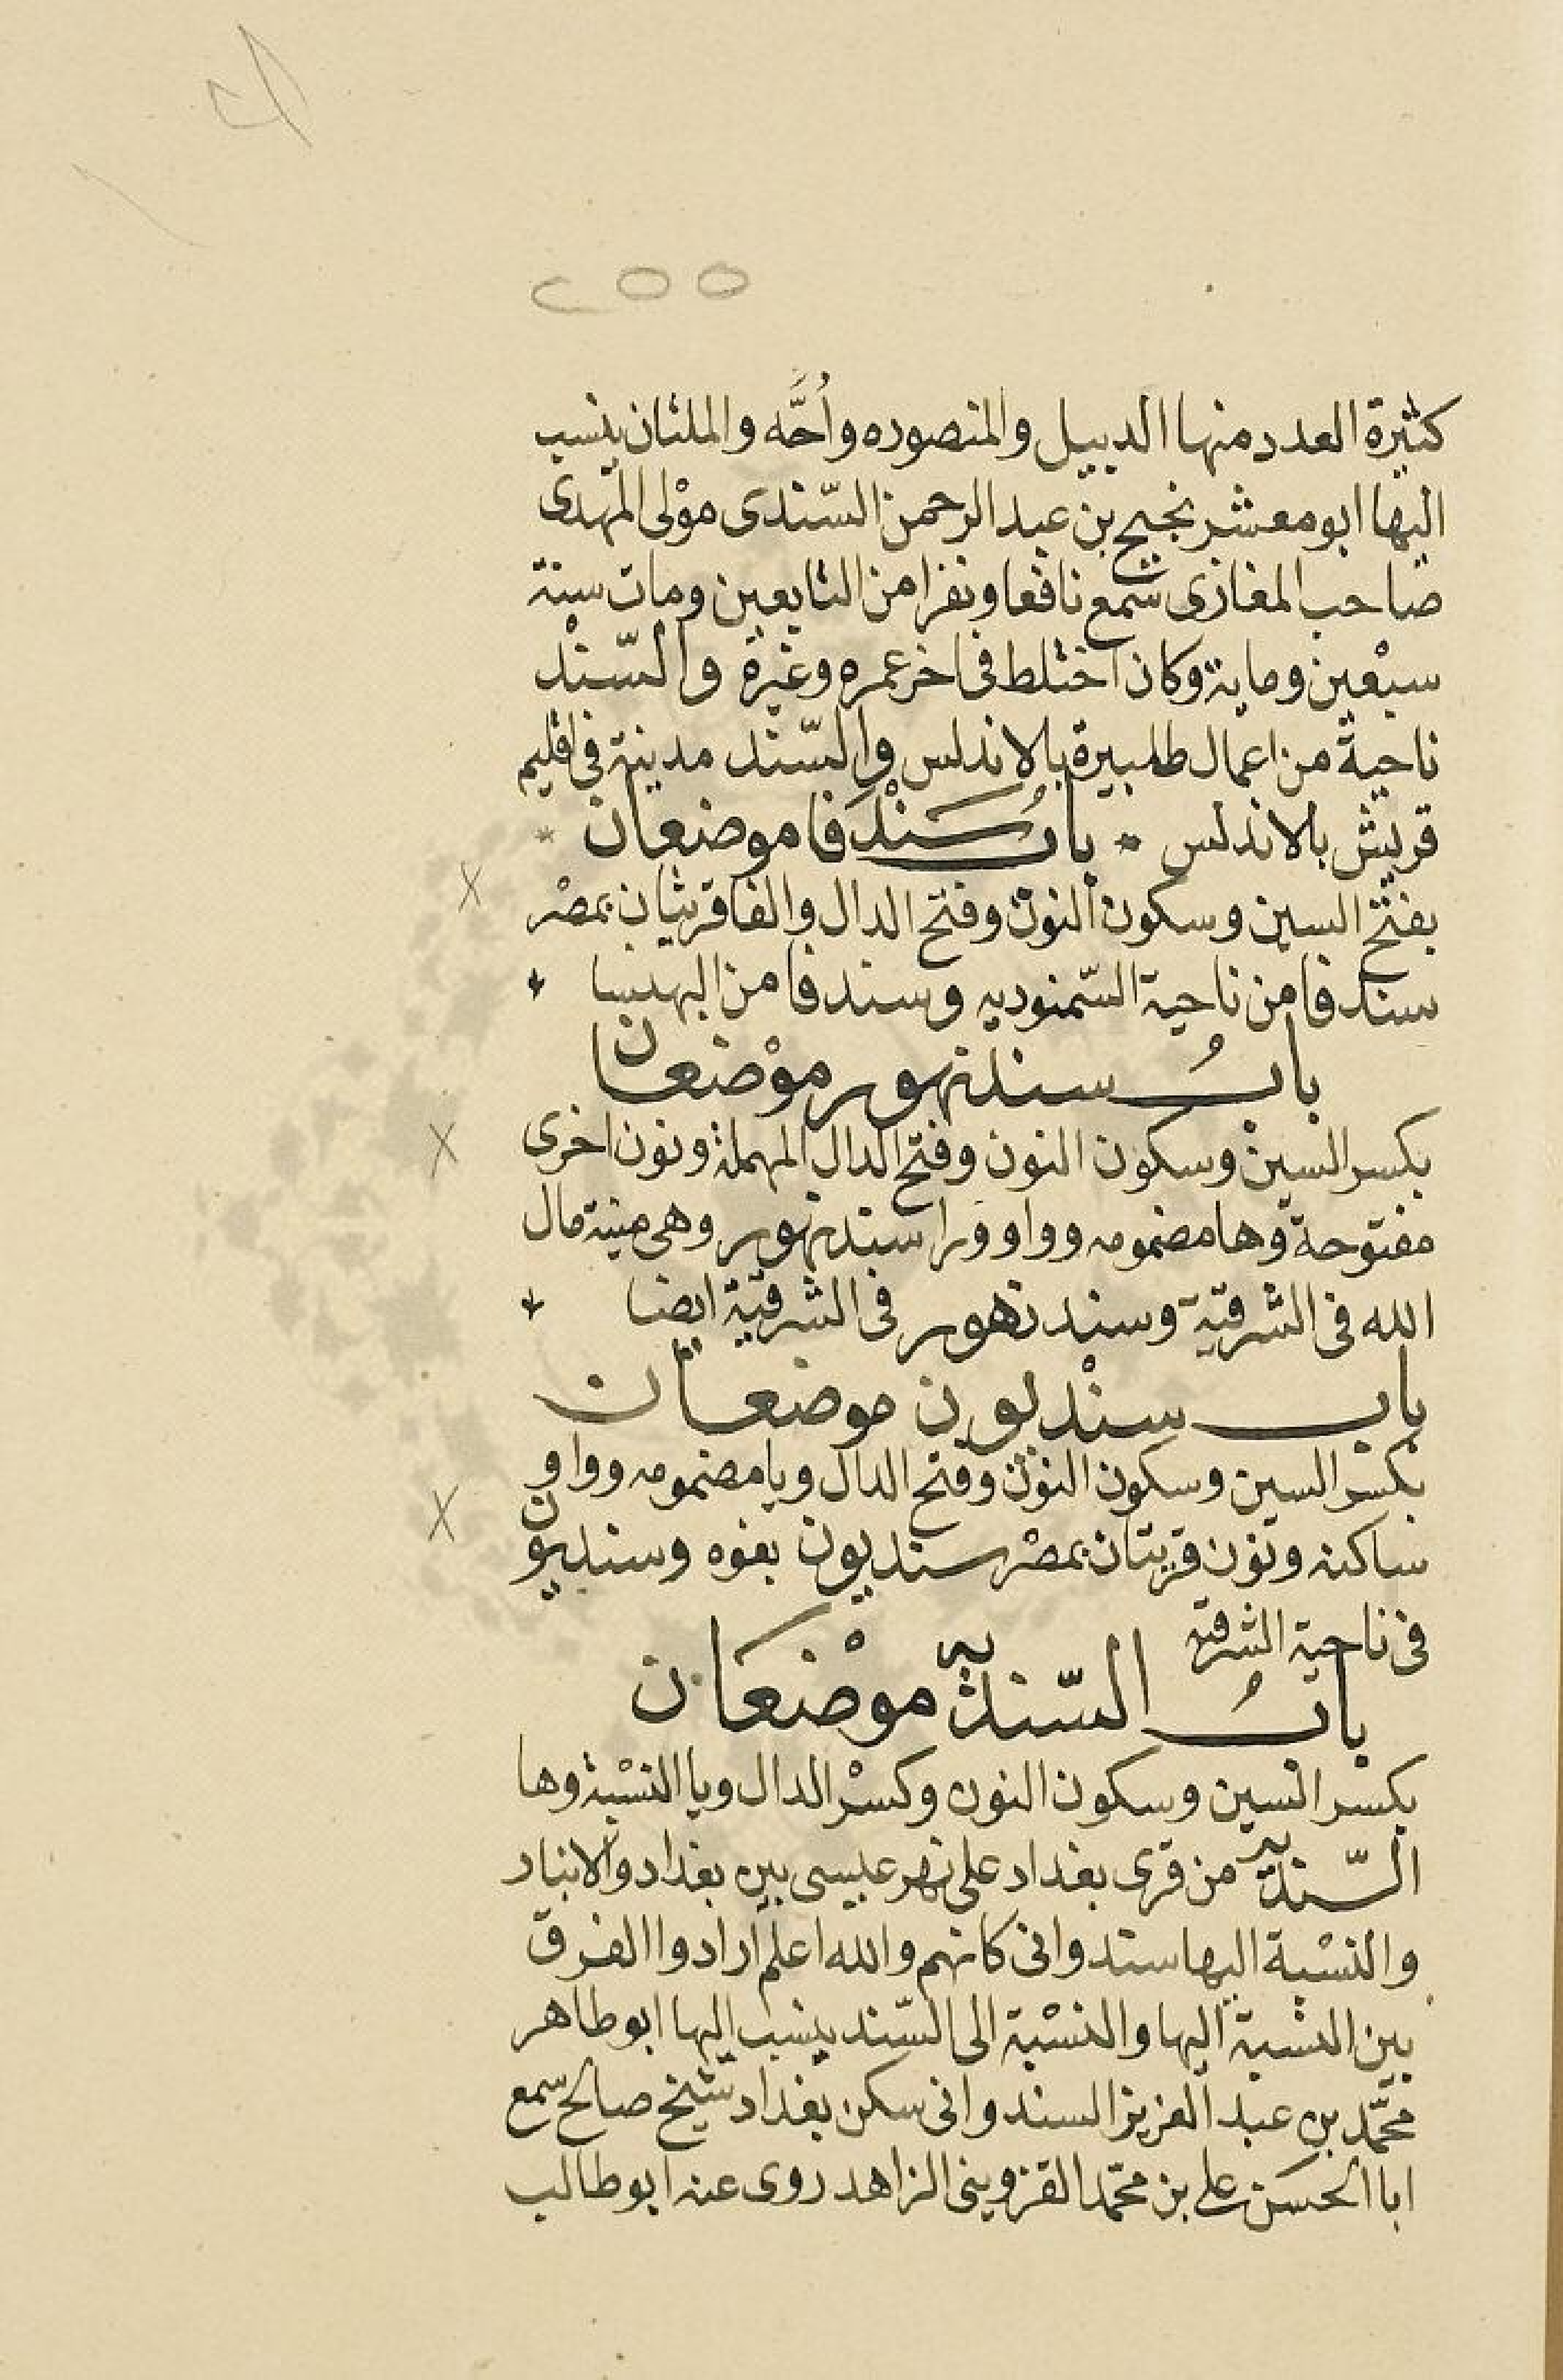 ٢٥٥
كثيرة العدد منها الديبل والمنصوره واُجَّه والملتان ينسب
اليها ابو معشر نجيح بن عبد الرحمن السّندى موْلى المهدى
صاحب المغازى سمع نافعا ونفرا من التابعين ومات سنة
سبْعين ومايه وكان اختلط فى اخر عمره وغيره والسّنْد
ناحية من اعمال طلبيرة بالاندلس والسّند مدينة فى اقليم
قريش بالاندلس * بابُ سَنْدَفا موضعان
بفتح السين وسكون النون وفتح الدال والفا قريتان بمصْر
سندفا من ناحية السّمنوديه وسندفا من البهنسا
بابُ سندنهور موْضعان
بكسر السين وسكون النون وفتح الدال المهملة ونون اخرى
مفتوحة وها مضمومه وواو ورا سندنهور وهى مينة مال
الله فى الشرقية وسندنهور فى الشرقية ايضا
باب سنْديون موضعان
بكسر السين وسكون النون وفتح الدال ويا مضمومه وواو
ساكنه ونون قريتان بمصْر سنديون بفوه وسنديون
فى ناحية الشرقية
بابُ السّندية موْضعَان
بكسْر السين وسكون النون وكسْر الدال ويا النسْبة وها
السّندية من قرى بغداد على نهر عيسى بين بغداد والانبار
والنسْبة اليها سندوانى كانهم والله اعلم ارادوا الفرق
بين النسبة اليها والنسْبة الى السّند ينسب اليها ابو طاهر
محمّد بن عبد العزيز السندوانى سكن بغداد شيخ صالح سمع
ابا الحسَن على بن محمّد القزوينى الزاهد روى عنه ابو طالب